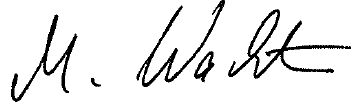 M. Wacht